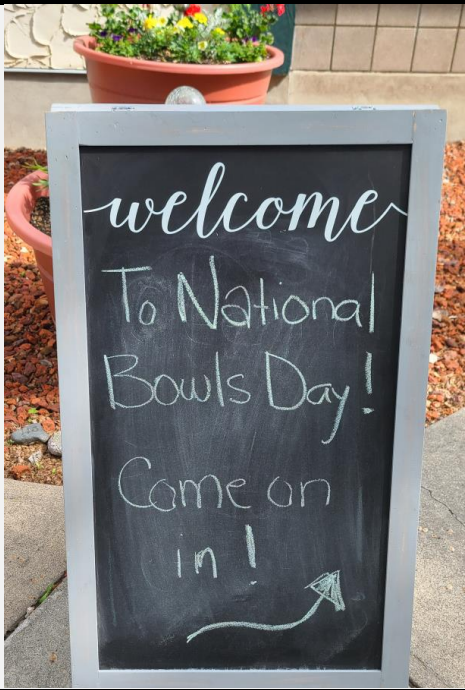 welcome
To National
Bowls Day!
Come on
in!